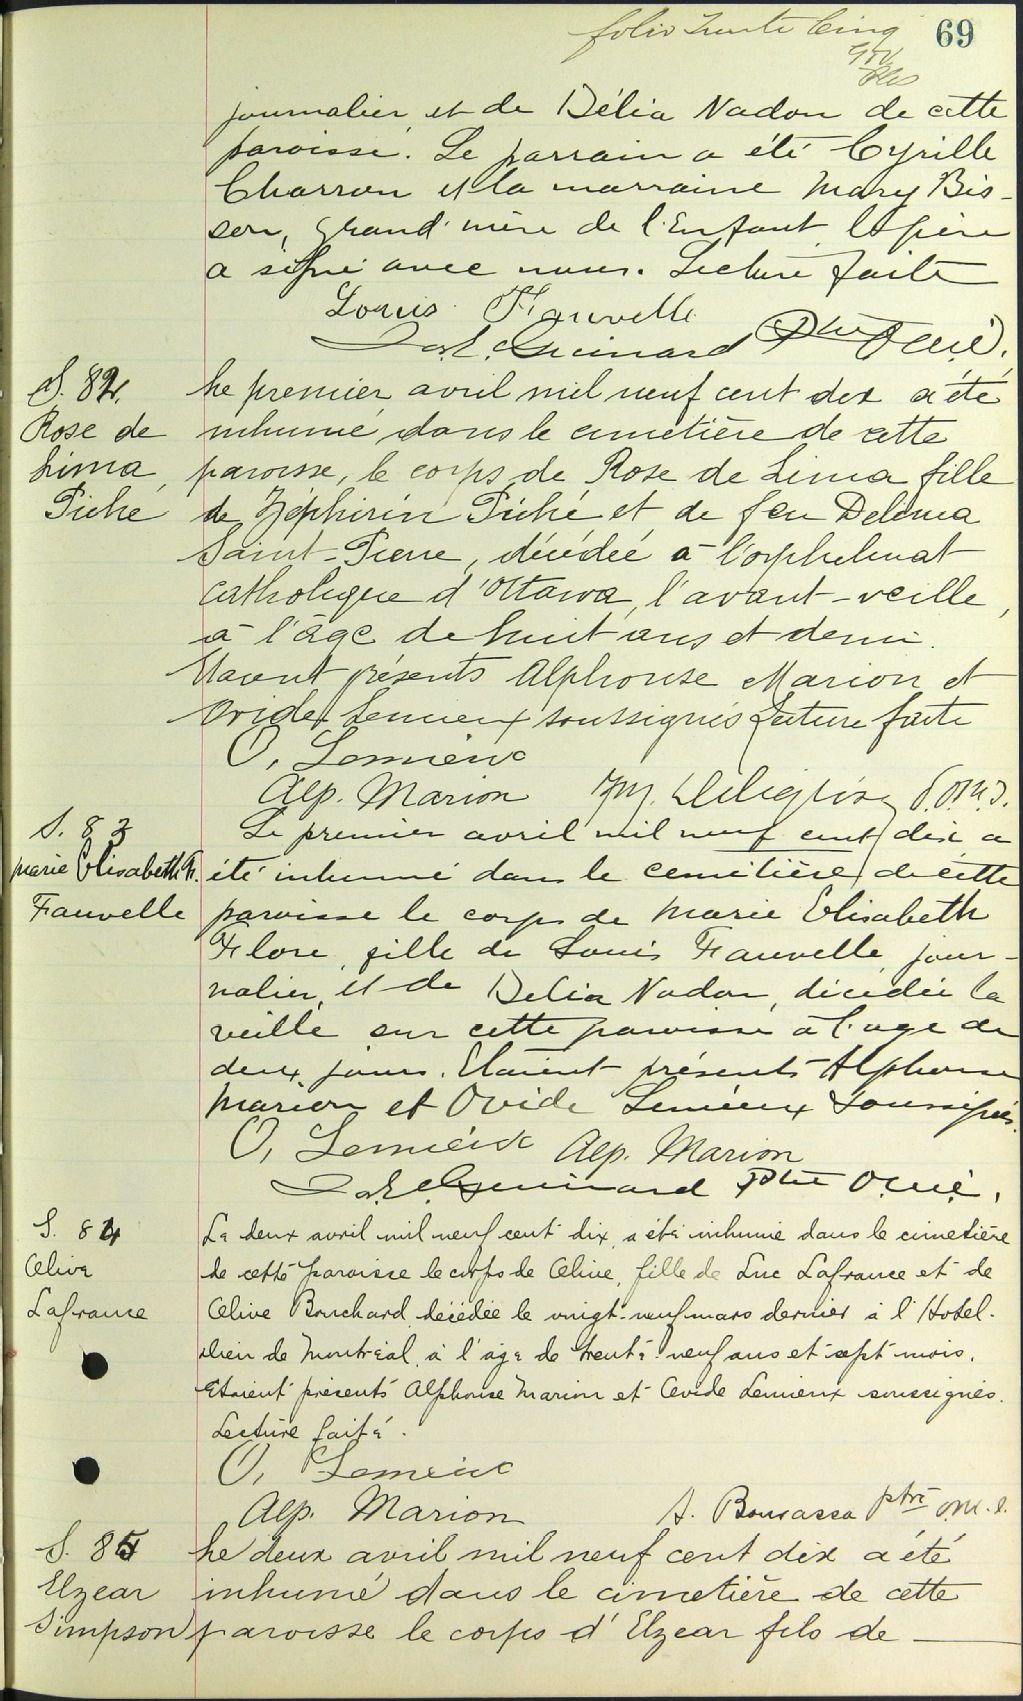 folio trente cinq 69
journalier et de Délia Nadon de cette
paroisse. Le parrain a été Cyrille
Charron et la marraine Mary Bis-
son, grand'mère de l'Enfant. Le père
a signé avec nous. Lecture faite
Louis Fauvelle
Jos. E. Guinard Ptre O.M.I.
S. 82.
Rose de
Lima
Piché
Le premier avril mil neuf cent dix a été
inhumé dans le cimetière de cette
paroisse, le corps de Rose de Lima fille
de Zéphirin Piché et de feu Delima
Saint-Pierre, décédée à l'orphelinat
catholique d'Ottawa, l'avant-veille,
à l'âge de huit ans et demi.
Etaient présents Alphonse Marion et
Ovide Lemieux soussignés Lecture faite
O. Lemieux
Alp. Marion O.M.I.
S. 83
Marie Elisabeth F.
Fauvelle
Le premier avril mil neuf cent dix a
été inhumé dans le cemetière de cette
paroisse le corps de Marie Elisabeth
Flore, fille de Louis Fauvelle, jour-
nalier, et de Delia Nadon, décédée la
veille sur cette paroisse à l'age de
deux jours. Etaient présents Alphonse
Marion et Ovide Lemieux soussignés.
O. Lemieux Alp. Marion
Jos. E. Guinard Ptre O.M.I.
S. 84
Olive
Lafrance
Le deux avril mil neuf cent dix, a été inhumé dans le cimetière
de cette paroisse le corps de Olive, fille de Luc Lafrance et de
Olive Bouchard, décédée le vingt-neuf mars dernier à l'Hotel-
dieu de Montréal, à l'age de trente-neuf ans et sept mois.
Etaient présents Alphonse Marion et Ovide Lemieux soussignés.
Lecture faite.
O. Lemieux
Alp. Marion A. Bourassa ptre O.M.I.
S. 85
Elzear
Simpson
Le deux avril mil neuf cent dix a été
inhumé dans le cimetière de cette
paroisse le corps d'Elzear fils de